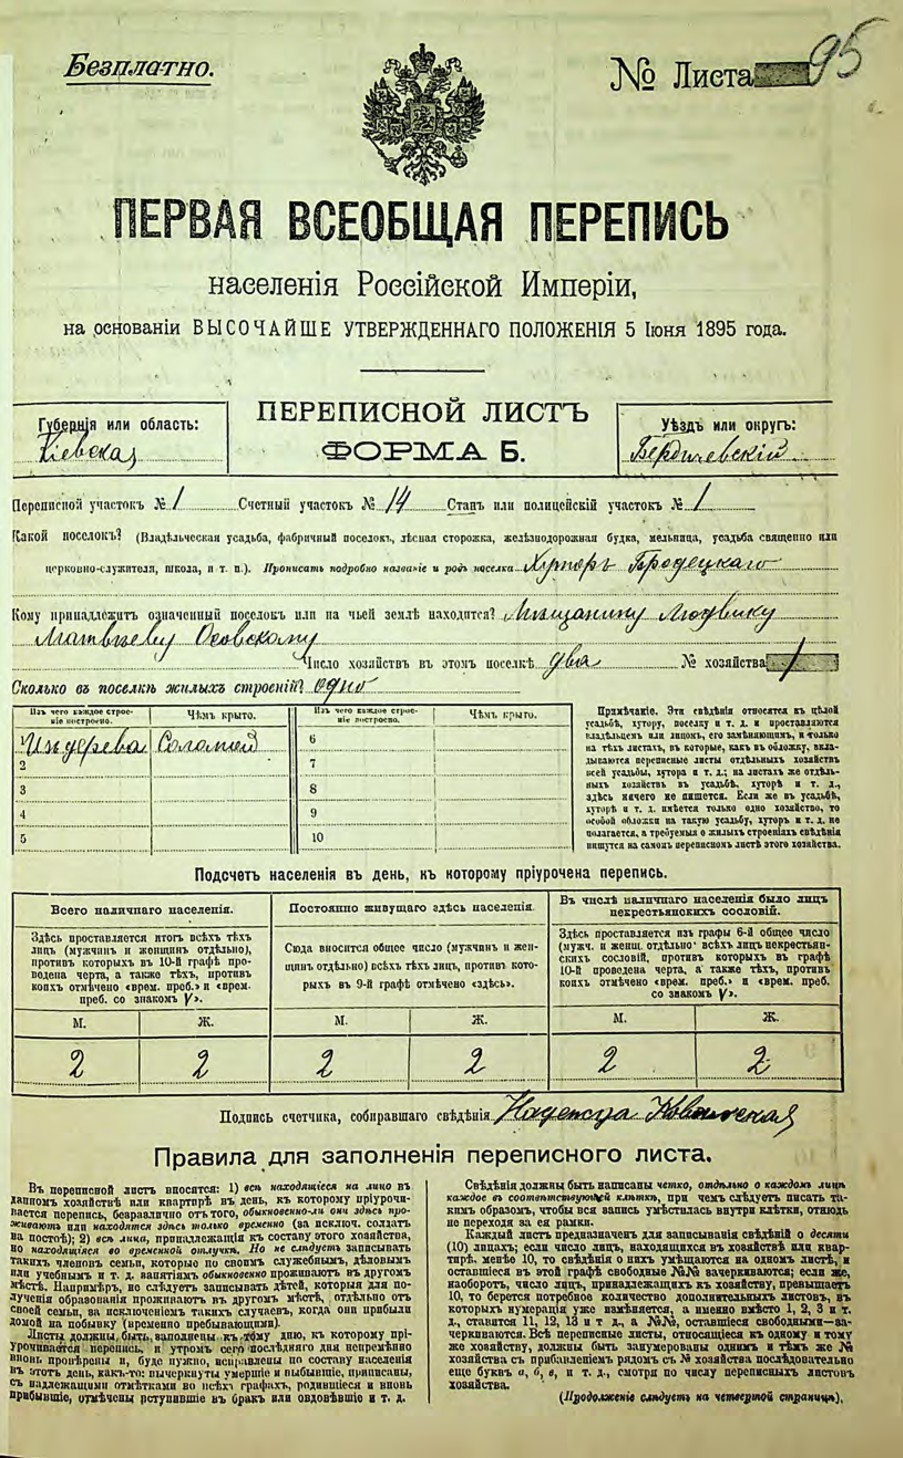 Безплатно.
№ Листа 95
ПЕРВАЯ ВСЕОБЩАЯ ПЕРЕПИСЬ
населенія Россійской Имперіи,
на основаніи ВЫСОЧАЙШЕ УТВЕРЖДЕННАГО ПОЛОЖЕНІЯ 5 Іюня 1895 года.
Губернія или область:
Кіевская
ПЕРЕПИСНОЙ ЛИСТЪ
ФОРМА Б.
Уѣздъ или округъ:
Бердичевскій
Переписной участокъ № 1 Счетный участокъ № 14 Станъ или полицейскій участокъ № 1
Какой поселокъ? (Владѣльческая усадьба, фабричный поселокъ, лѣсная сторожка, желѣзнодорожная будка, мельница, усадьба священно или
церковно-служителя, школа, и т. п.). Прописать подробно названіе и родъ поселка Хуторъ Бродецкаго
Кому принадлежитъ означенный поселокъ или на чьей землѣ находится? Мѣщанину Людвику
Матвѣеву Осовскому
Число хозяйствъ въ этомъ поселкѣ два № хозяйства 1
Сколько въ поселкѣ жилыхъ строеній? одно
Изъ чего каждое строе-
ніе построено.
Чѣмъ крыто.
Изъ чего каждое строе-
ніе построено.
Чѣмъ крыто.
1 Изъ дерева Соломой
2
3
4
5
6
7
8
9
10
Примѣчаніе. Эти свѣдѣнія относятся къ цѣлой
усадьбѣ, хутору, поселку и т. д. и проставляются
владѣльцемъ или лицомъ, его замѣняющимъ, и только
на тѣхъ листахъ, въ которые, какъ въ обложку, вкла-
дываются переписные листы отдѣльныхъ хозяйствъ
всей усадьбы, хутора и т. д.; на листахъ же отдѣль-
ныхъ хозяйствъ въ усадьбѣ, хуторѣ и т. д.,
здѣсь ничего не пишется. Если же въ усадьбѣ,
хуторѣ и т. д. имѣется только одно хозяйство, то
особой обложки на такую усадьбу, хуторъ и т. д. не
полагается, а требуемыя о жилыхъ строеніяхъ свѣдѣнія
пишутся на самомъ переписномъ листѣ этого хозяйства.
Подсчетъ населенія въ день, къ которому пріурочена перепись.
Всего наличнаго населенія.
Здѣсь проставляется итогъ всѣхъ тѣхъ
лицъ (мужчинъ и женщинъ отдѣльно),
противъ которыхъ въ 10-й графѣ про-
ведена черта, а также тѣхъ, противъ
коихъ отмѣчено «врем. преб.» и «врем.
преб. со знакомъ V».
М. Ж.
2 2
Постоянно живущаго здѣсь населенія.
Сюда вносится общее число (мужчинъ и жен-
щинъ отдѣльно) всѣхъ тѣхъ лицъ, противъ кото-
рыхъ въ 9-й графѣ отмѣчено «здѣсь».
М. Ж.
2 2
Въ числѣ наличнаго населенія было лицъ
некрестьянскихъ сословій.
Здѣсь проставляется изъ графы 6-й общее число
(мужч. и женщ. отдѣльно) всѣхъ лицъ некрестьян-
скихъ сословій, противъ которыхъ въ графѣ
10-й проведена черта, а также тѣхъ, противъ
коихъ отмѣчено «врем. преб.» и «врем. преб.
со знакомъ V».
М. Ж.
2 2
Подпись счетчика, собиравшаго свѣдѣнія Надежда
Правила для заполненія переписного листа.
Въ переписной листъ вносятся: 1) всѣ находящіеся на лицо въ
данномъ хозяйствѣ или квартирѣ въ день, къ которому пріурочи-
вается перепись, безразлично отъ того, обыкновенно-ли они здѣсь про-
живаютъ или находятся здѣсь только временно (за исключ. солдатъ
на постоѣ); 2) всѣ лица, принадлежащія къ составу этого хозяйства,
но находящіяся во временной отлучкѣ. Но не слѣдуетъ записывать
такихъ членовъ семьи, которые по своимъ служебнымъ, дѣловымъ
или учебнымъ и т. д. занятіямъ обыкновенно проживаютъ въ другомъ
мѣстѣ. Напримѣръ, не слѣдуетъ записывать дѣтей, которыя для по-
лученія образованія проживаютъ въ другомъ мѣстѣ, отдѣльно отъ
своей семьи, за исключеніемъ такихъ случаевъ, когда они прибыли
домой на побывку (временно пребывающими).
Листы должны быть заполнены къ тому дню, къ которому прі-
урочивается перепись, и утромъ сего послѣдняго дня непремѣнно
вновь провѣрены и, буде нужно, исправлены по составу населенія
въ этотъ день, какъ-то: вычеркнуты умершіе и выбывшіе, приписаны,
съ надлежащими отмѣтками во всѣхъ графахъ, родившіеся и вновь
прибывшіе, отмѣчены вступившіе въ бракъ или овдовѣвшіе и т. д.
Свѣдѣнія должны быть написаны четко, отдѣльно о каждомъ лицѣ
каждое въ соотвѣтствующей клѣткѣ, при чемъ слѣдуетъ писать та-
кимъ образомъ, чтобы вся запись умѣстилась внутри клѣтки, отнюдь
не переходя за ея рамки.
Каждый листъ предназначенъ для записыванія свѣдѣній о десяти
(10) лицахъ; если число лицъ, находящихся въ хозяйствѣ или квар-
тирѣ, менѣе 10, то свѣдѣнія о нихъ умѣщаются на одномъ листѣ, и
оставшіеся въ этой графѣ свободные №№ зачеркиваются; если же,
наоборотъ, число лицъ, принадлежащихъ къ хозяйству, превышаетъ
10, то берется потребное количество дополнительныхъ листовъ, въ
которыхъ нумерація уже измѣняется, а именно вмѣсто 1, 2, 3 и т.
д., ставится 11, 12, 13 и т д., а №№, оставшіеся свободными—за-
черкиваются. Всѣ переписные листы, относящіеся къ одному и тому
же хозяйству, должны быть занумерованы однимъ и тѣмъ же №
хозяйства съ прибавленіемъ рядомъ съ № хозяйства послѣдовательно
еще буквъ а, б, в, и т. д., смотря по числу переписныхъ листовъ
хозяйства.
(Продолженіе слѣдуетъ на четвертой страницѣ).